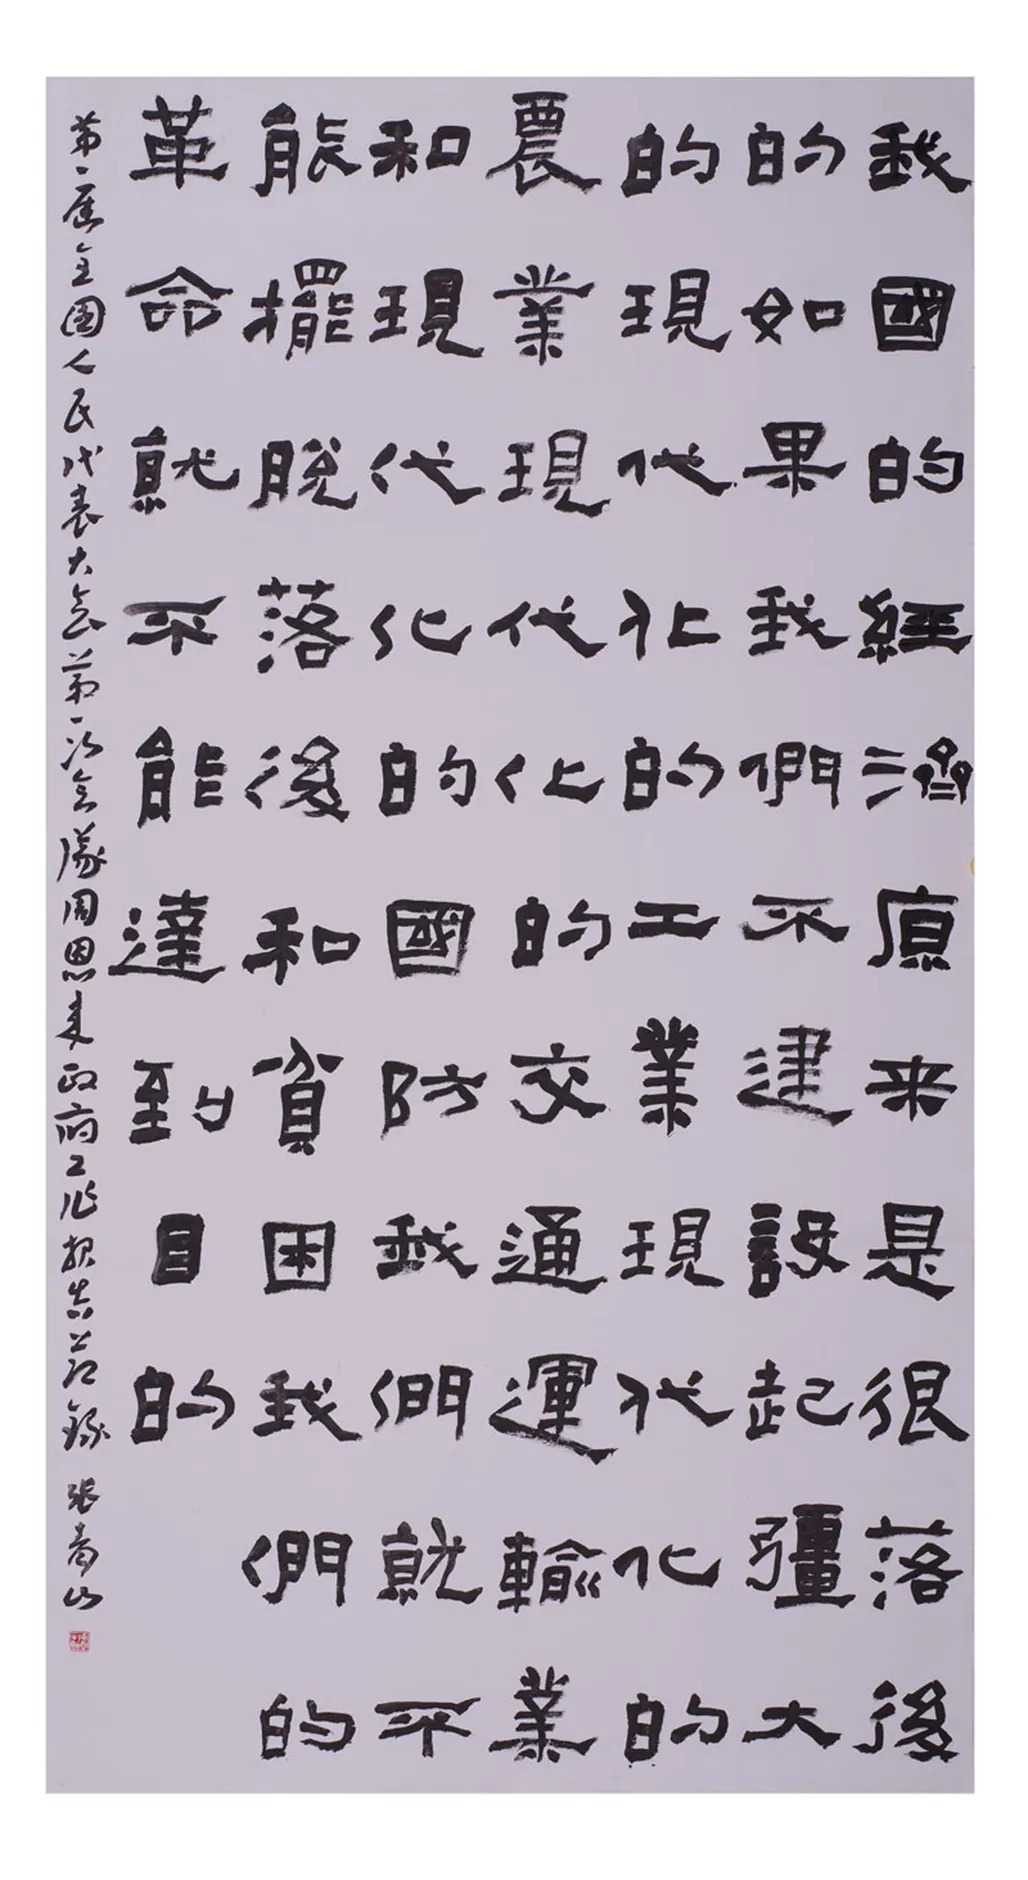 我國的經濟原来是很落後
的如果我們不建設起彊大
的現代化的工業現代化的
農業現代化的交通運輸業
和現代化的國防我們就不
能擺脫落後和貧困我們的
革命就不能達到目的
第一届全国人民代表大会第一次会議周恩来政府工作报告節錄 張青山